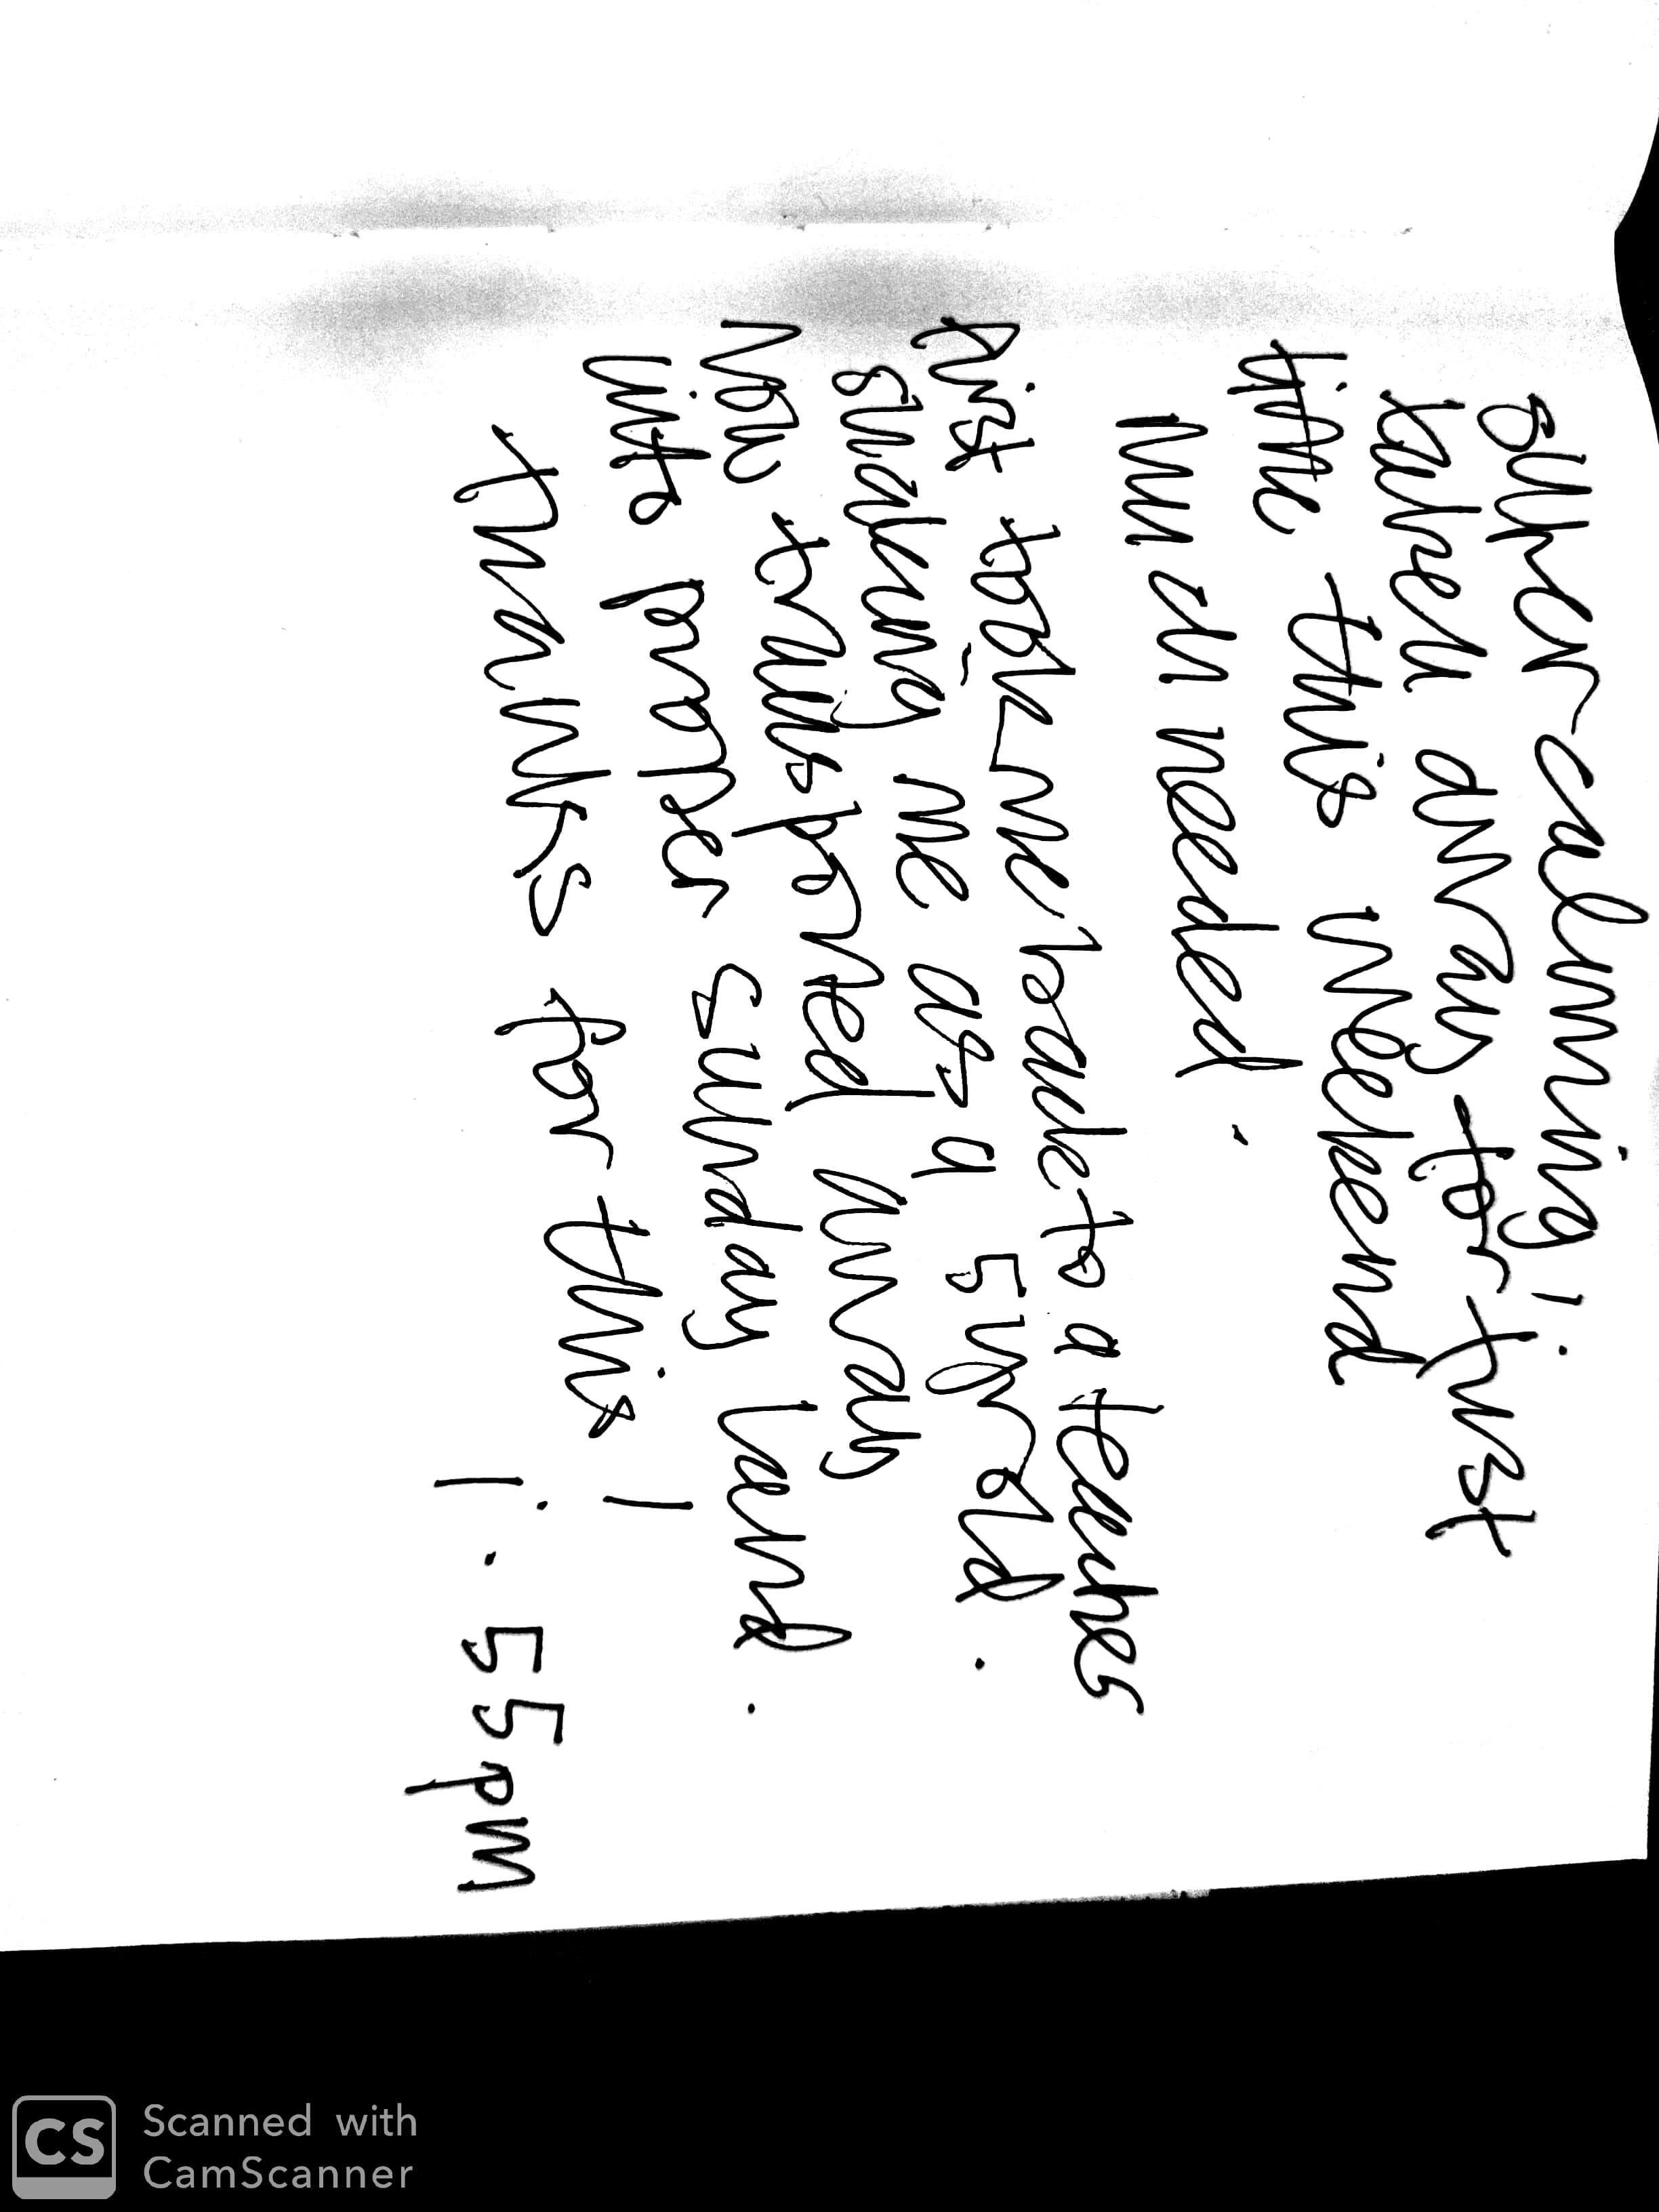 super calming!
taken away for first
time this weekend
mu an needed.
first took me back to a teachers
shaking me as a 5 yr old.
Now transported away
into proper sunday land.
thanks for this!
1:55pm
Scanned with
CamScanner